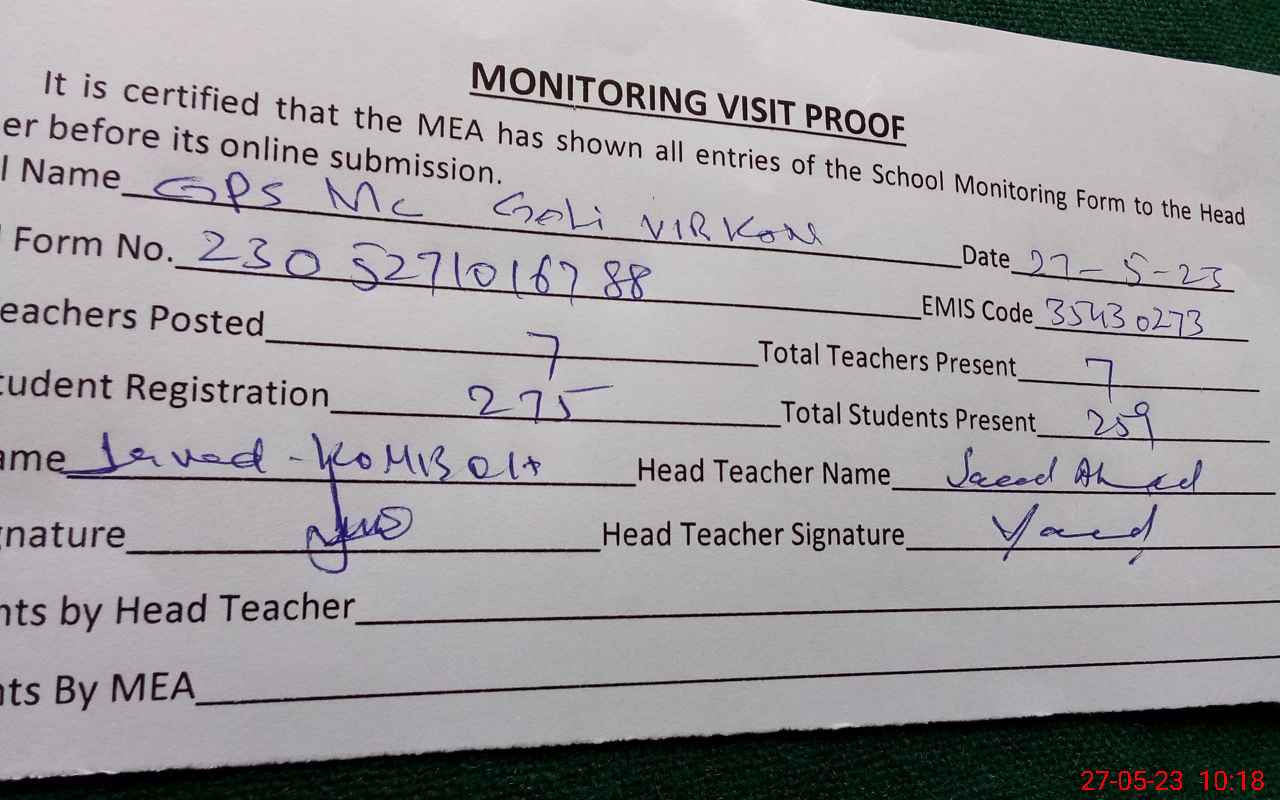 MONITORING VISIT PROOF
It is certified that the MEA has shown all entries of the School Monitoring Form to the Head
er before its online submission.
l Name GPS MC Goli VIRKON
Date 27-5-23
Form No. 23052710167 88
EMIS Code 35430273
eachers Posted 7
Total Teachers Present 7
tudent Registration 275
Total Students Present 259
ame Javed - KOMBOH
Head Teacher Name Saeed Ahmed
gnature
Head Teacher Signature
nts by Head Teacher
nts By MEA
27-05-23 10:18